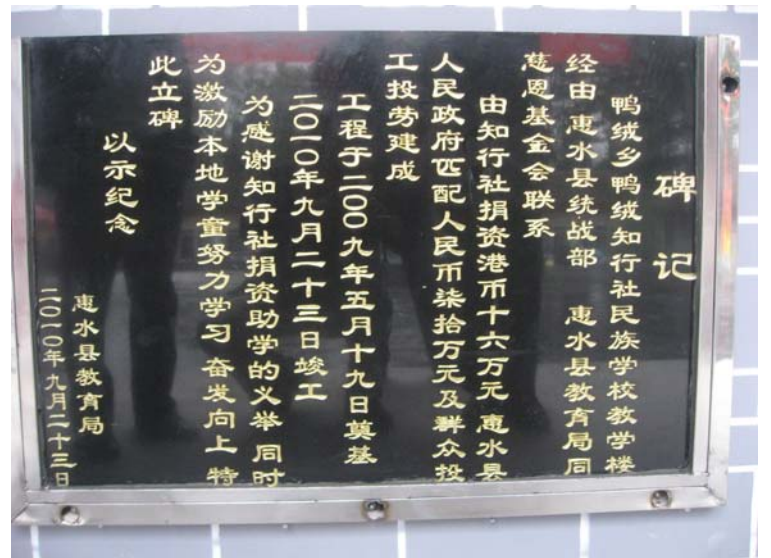 碑记
鸭绒乡鸭绒知行社民族学校教学楼
经由 惠水县统战部 惠水县教育局同
慈恩基金会联系
由知行社捐资港币十六万元 惠水县
人民政府匹配人民币柒拾万元及群众投
工投劳建成
工程于二00九年五月十九日奠基
二0一0年九月二十三日竣工
为感谢知行社捐资助学的义举 同时
为激励本地学童努力学习 奋发向上 特
此立碑
以示纪念
惠水县教育局
二0一0年九月二十三日